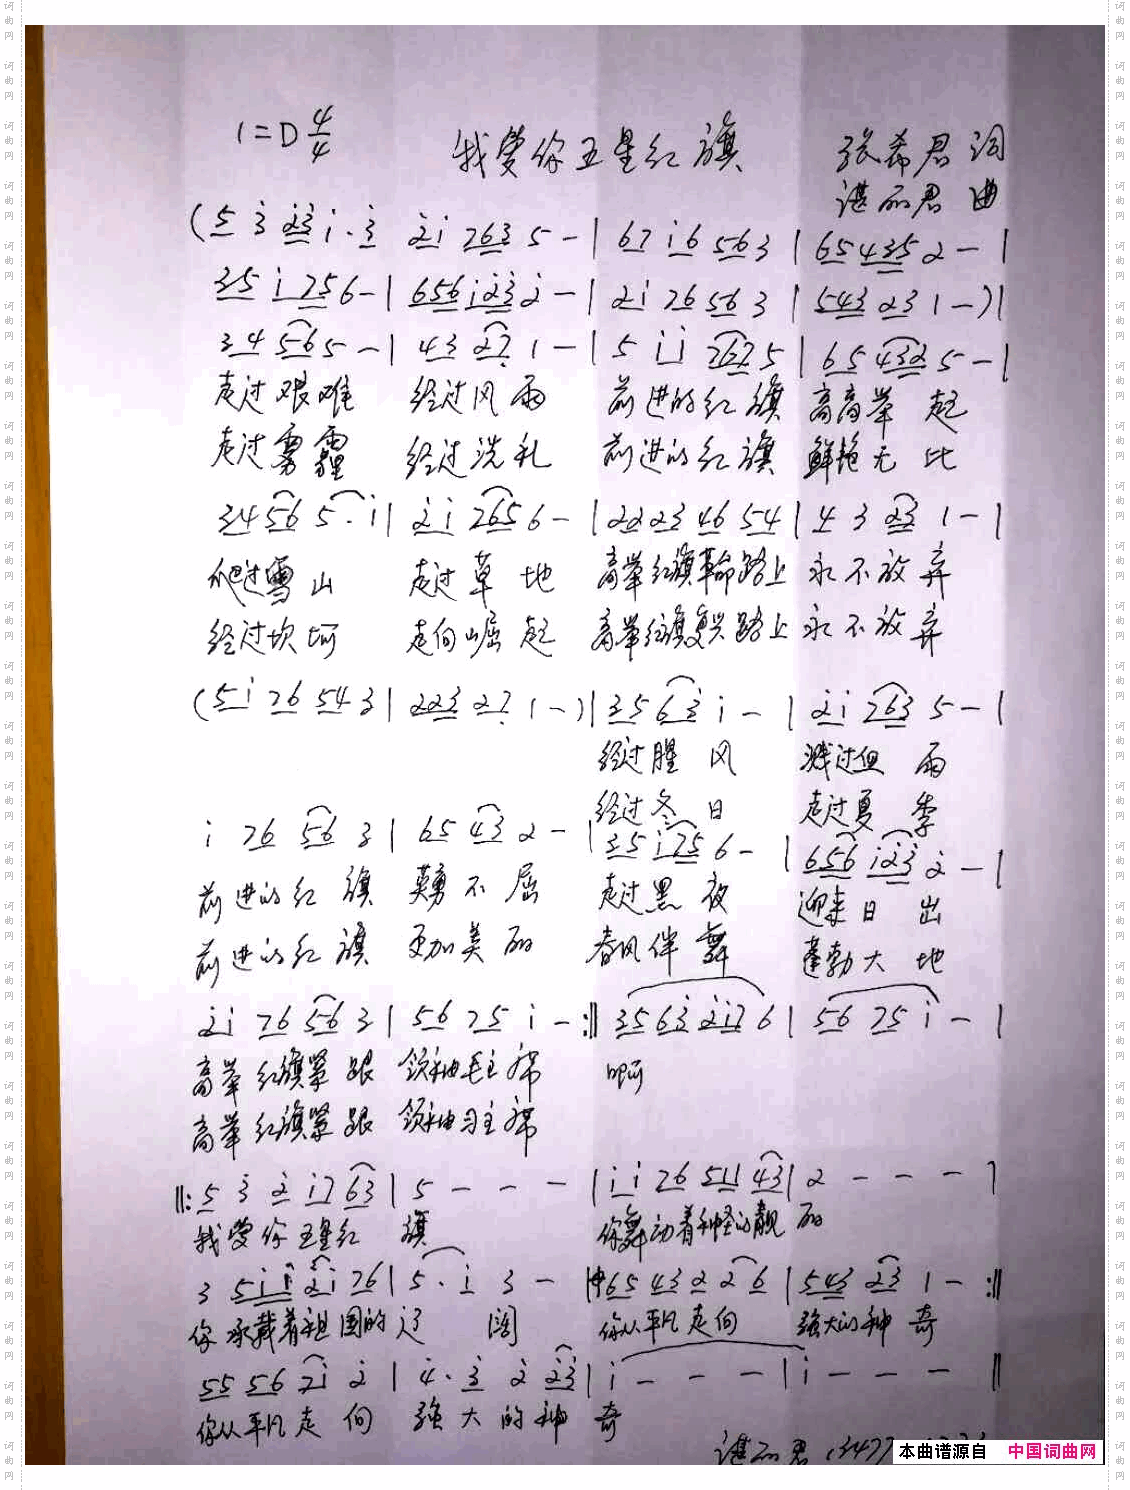 1=D 4/4 我爱你五星红旗 张希君 词
谌丽君 曲
(5 3 23 1·3 21 763 5 - | 67 16 563 | 65 435 2 - |
35 1 756 - | 656 123 2 - | 21 76 56 3 | 543 23 1 - )|
34 565 - | 43 27 1 - | 5 11 7675 | 65 432 5 - |
走过艰难 经过风雨 前进的红旗 高高举起
走过雾霾 经过洗礼 前进的红旗 鲜艳无比
34 56 5·1 | 21 765 6 - | 22 23 46 54 | 4 3 23 1 - |
爬过雪山 走过草地 高举红旗革命路上 永不放弃
经过坎坷 走向崛起 高举红旗复兴路上 永不放弃
(51 76 54 3 | 223 27 1 - )| 35 63 1 - | 21 763 5 - |
经过腥风 溅过血雨
经过冬日 走过夏季
1 76 56 3 | 65 43 2 - | 35 175 6 - | 656 123 2 - |
前进的红旗 英勇不屈 走过黑夜 迎来日出
前进的红旗 更加美丽 春风伴舞 蓬勃大地
21 76 56 3 | 56 75 1 - :|| 35 63 217 6 | 56 75 1 - |
高举红旗紧跟 领袖毛主席 啊
高举红旗紧跟 领袖习主席
||: 5 3 2 17 63 | 5 - - - | 11 76 511 43 | 2 - - - |
我爱你五星红旗 你舞动着神怪的靓丽
3 511 21 76 | 5·1 3 - | 65 43 2 2 6 | 543 23 1 - :||
你承载着祖国的辽阔 你从平凡走向 强大的神奇
55 56 71 2 | 4·3 2 23 | 1 - - - | 1 - - - ||
你从平凡走向 强大的神奇
谌丽君
本曲谱源自 中国词曲网
词曲网